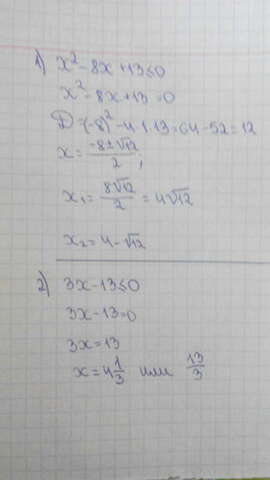 1) x²-8x+13≤0
x²-8x+13=0
D=(-8)²-4·1·13=64-52=12
x=\frac{-8±√12}{2};
x₁=\frac{8√12}{2}=4√12
x₂=4-√12
2) 3x-13≤0
3x-13=0
3x=13
x=4\frac{1}{3} или \frac{13}{3}